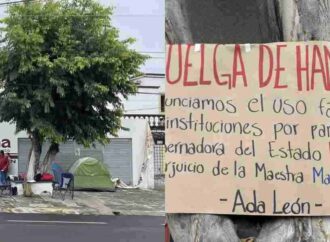 UELGA DE HAM
unciamos el uso fa
instituciones por par
ernadora del Estado
rjuicio de la Maestra Ma
- Ada León -